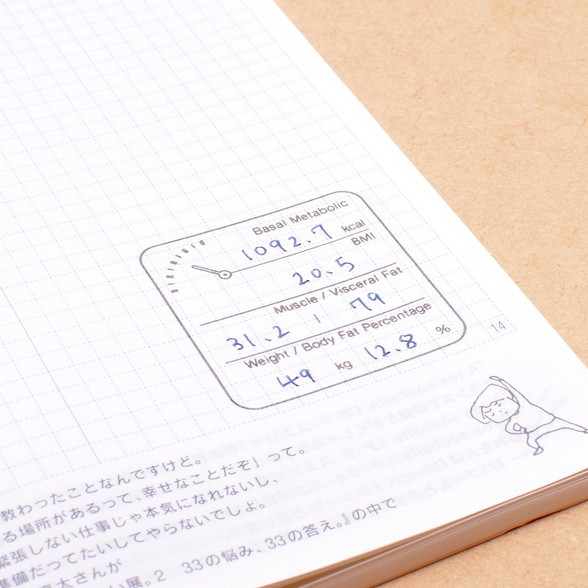 Basal Metabolic
1092.7 kcal
BMI
20.5
Muscle / Visceral Fat
31.2 | 79
Weight / Body Fat Percentage
49 kg 12.8 %
14
教わったことなんですけど。
る場所があるって、幸せなことだぞ」って。
緊張しない仕事じゃ本気になれないし、
準備だってたいしてやらないでしょ。
太さんが
い展。2 33の悩み、33の答え。』の中で